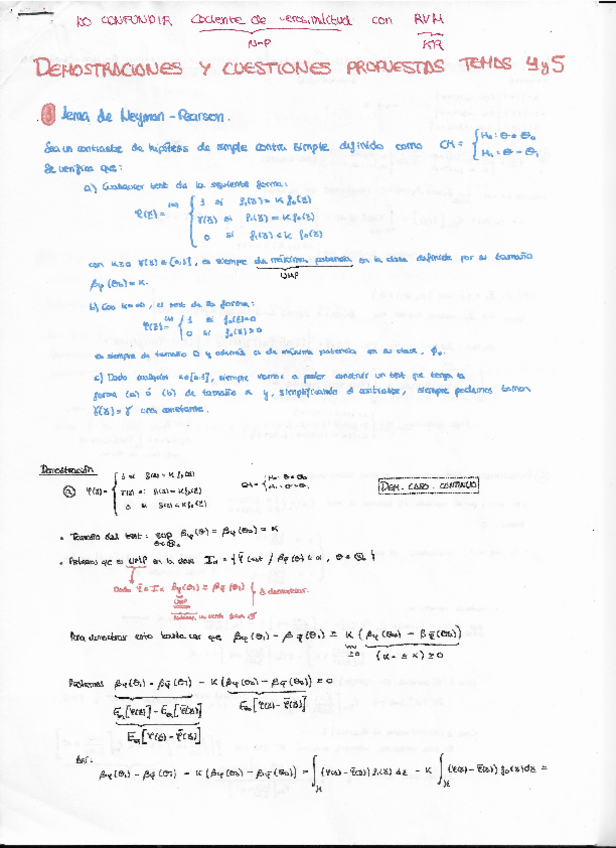 NO CONFUNDIR Cociente de verosimilitud con RVM
N-P KR
DEMOSTRACIONES Y CUESTIONES PROPUESTAS TEMAS 4 y 5
Lema de Neyman-Pearson.
Sea un contraste de hipótesis de simple contra simple definido como CH = { H₀: θ = θ₀
H₁: θ = θ₁
Se verifica que:
a) Cualquier test de la siguiente forma:
1 si f₁(x) > K f₀(x)
φ(x) = { γ(x) si f₁(x) = K f₀(x)
0 si f₁(x) < K f₀(x)
con K≥0 γ(x) ∈ [0,1], es siempre de máxima potencia en la clase definida por su tamaño
UMP
βφ(θ₀) = α.
b) Con K=∞, el test de la forma:
φ(x) = { 1 si f₀(x)=0
0 si f₀(x)>0
es siempre de tamaño 0 y además es de máxima potencia en su clase,
c) Dado cualquier α∈[0,1], siempre vamos a poder construir un test que tenga la
forma (a) ó (b) de tamaño α y, simplificando el contraste, siempre podemos tomar
γ(x) = γ una constante.
Demostración
1 si f₁(x) > K f₀(x)
ⓐ φ(x) = { γ(x) si f₁(x) = K f₀(x)
0 si f₁(x) < K f₀(x)
CH = { H₀: θ = θ₀
H₁: θ = θ₁
DEM. CASO CONTINUO
• Tamaño del test: sup βφ(θ) = βφ(θ₀) = α
• Veamos que es UMP en la clase
Dado βφ(θ₁) ≥ βφ̃(θ₁) } A demostrar.
UMP
Para demostrar esto basta ver que βφ(θ₁) - βφ̃(θ₁) ≥ K (βφ(θ₀) - βφ̃(θ₀))
≥0
βφ(θ₁) - βφ̃(θ₁) - K (βφ(θ₀) - βφ̃(θ₀)) ≥ 0
Eθ₁[φ(x)] - Eθ₁[φ̃(x)] Eθ₀[φ(x) - φ̃(x)]
Eθ₁[φ(x) - φ̃(x)]
Así:
βφ(θ₁) - βφ̃(θ₁) - K (βφ(θ₀) - βφ̃(θ₀)) = ∫ (φ(x) - φ̃(x)) f₁(x) dx - K ∫ (φ(x) - φ̃(x)) f₀(x) dx =